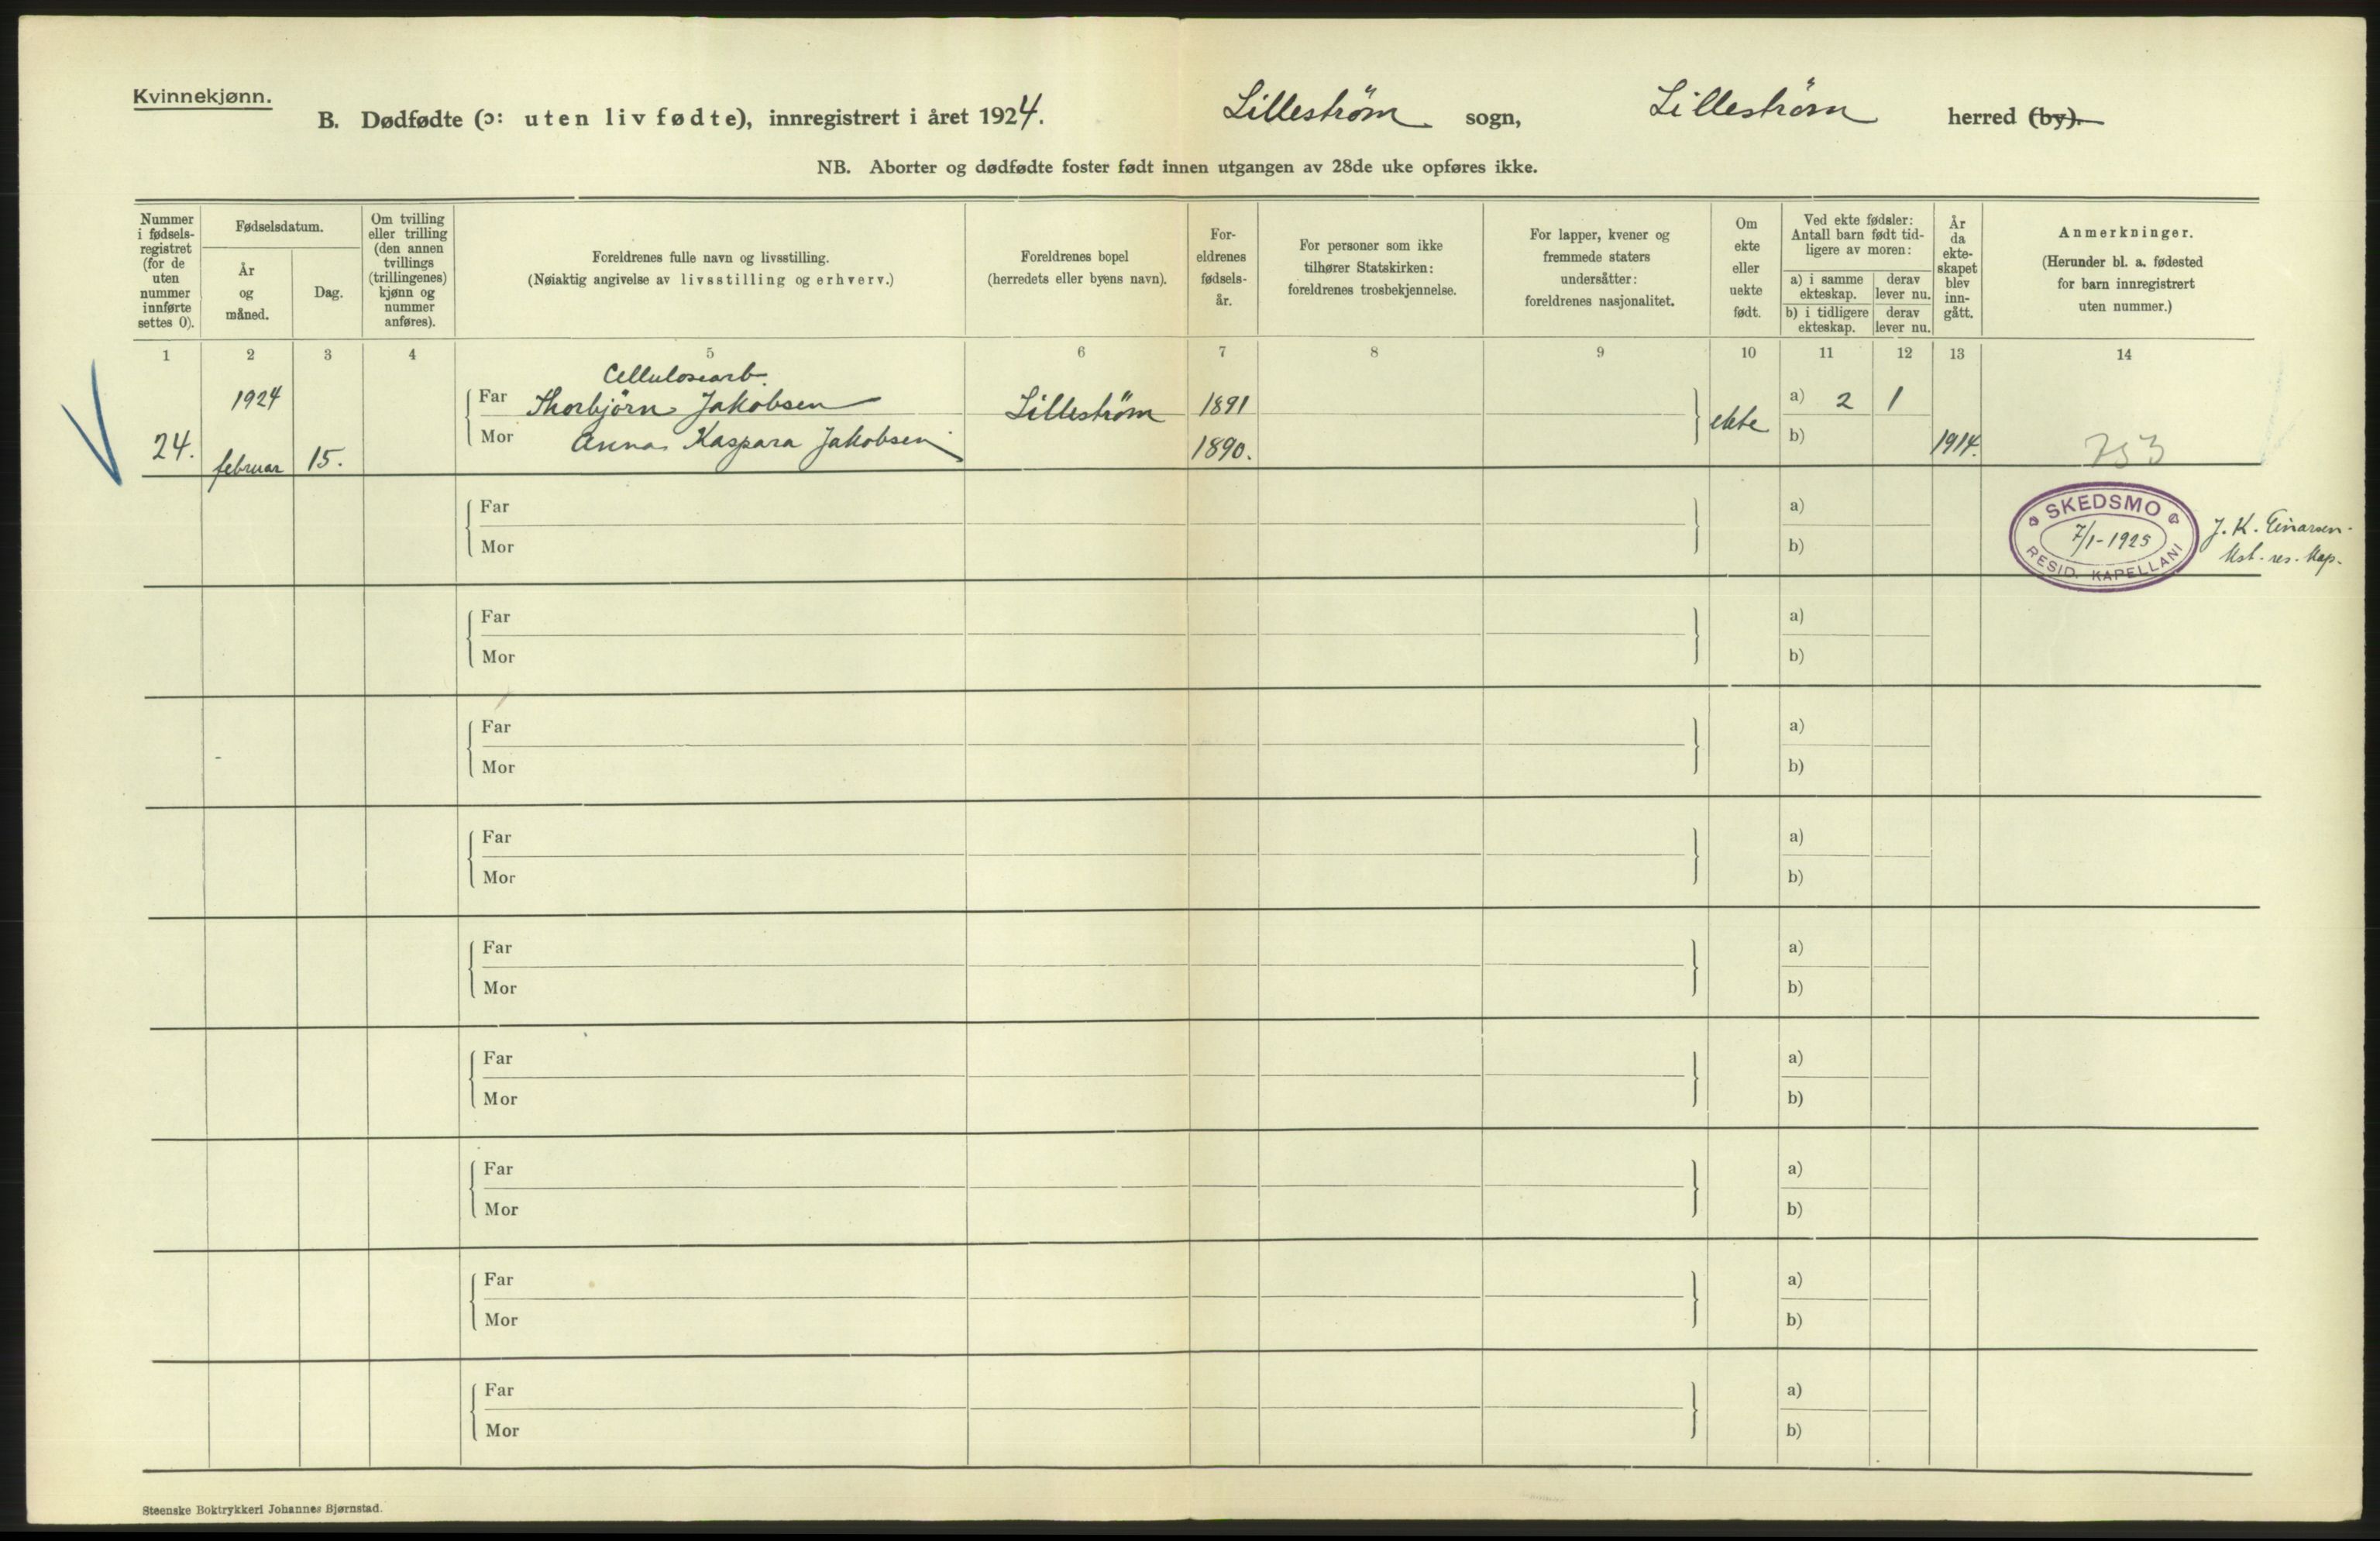 Kvinnekjønn.
B. Dødfødte (ɔ: uten liv fødte), innregistrert i året 1924. Lilleström sogn, Lilleström herred (by).
NB. Aborter og dødfødte foster født innen utgangen av 28de uke opføres ikke.
Nummer
i fødsels-
registret
(for de
uten
nummer
innførte
settes 0).
Fødselsdatum.
År
og
måned.
Dag.
Om tvilling
eller trilling
(den annen
tvillings
(trillingenes)
kjønn og
nummer
anføres).
Foreldrenes fulle navn og livsstilling.
(Nøiaktig angivelse av livsstilling og erhverv.)
Foreldrenes bopel
(herredets eller byens navn).
For-
eldrenes
fødsels-
år.
For personer som ikke
tilhører Statskirken:
foreldrenes trosbekjennelse.
For lapper, kvener og
fremmede staters
undersåtter:
foreldrenes nasjonalitet.
Om
ekte
eller
uekte
født.
Ved ekte fødsler:
Antall barn født tid-
ligere av moren:
a) i samme
ekteskap.
derav
lever nu.
b) i tidligere
ekteskap.
derav
lever nu.
År
da
ekte-
skapet
blev
inn-
gått.
Anmerkninger.
(Herunder bl. a. fødested
for barn innregistrert
uten nummer.)
1 2 3 4 5 6 7 8 9 10 11 12 13 14
Cellulosearb.
1924 Far Thorbjörn Jakobsen Lilleström 1891 ekte a) 2 1
24. februar 15. Mor Anna Kaspara Jakobsen 1890. b) 1914. 753
Far a)
Mor b)
SKEDSMO
7/1-1925
RESID. KAPELLANI
J. K. Einarsen.
Kst. res. Kap.
Far a)
Mor b)
Far a)
Mor b)
Far a)
Mor b)
Far a)
Mor b)
Far a)
Mor b)
Far a)
Mor b)
Far a)
Mor b)
Far a)
Mor b)
Steenske Boktrykkeri Johannes Bjørnstad.